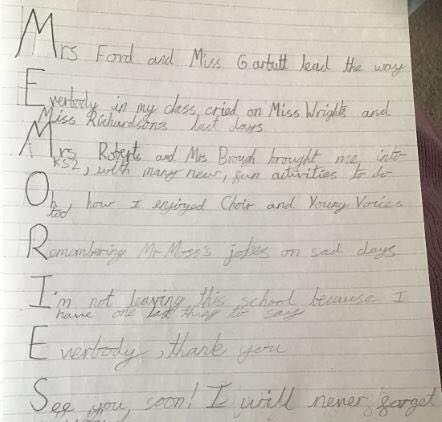 Mrs Ford and Miss Garbutt lead the way
Everbody in my class, cried on Miss Wrights and
Miss Richardson's last days
Mrs Roberts and Mrs Brough brought me into
KS2, with many new, fun activities to do
Oh, how I enjoyed Choir and Young Voices
too
Remembering Mr Moss's jokes on sad days
I'm not leaving this school because I
have one last thing to say
Everbody, thank you
See you soon! I will never forget